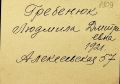 1809
Гребенюк
Людмила Дмитри
евна
1921.
Алексеевская 57